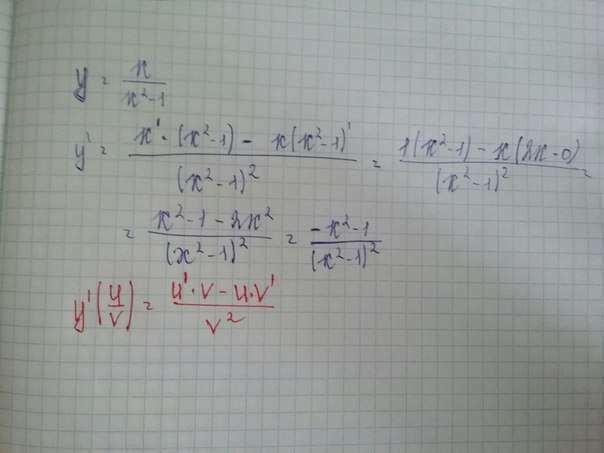 y = x / (x² - 1)
y' = (x' · (x² - 1) - x(x² - 1)') / (x² - 1)² = (1(x² - 1) - x(2x - 0)) / (x² - 1)² =
= (x² - 1 - 2x²) / (x² - 1)² = (-x² - 1) / (x² - 1)²
y'(u/v) = (u' · v - u · v') / v²